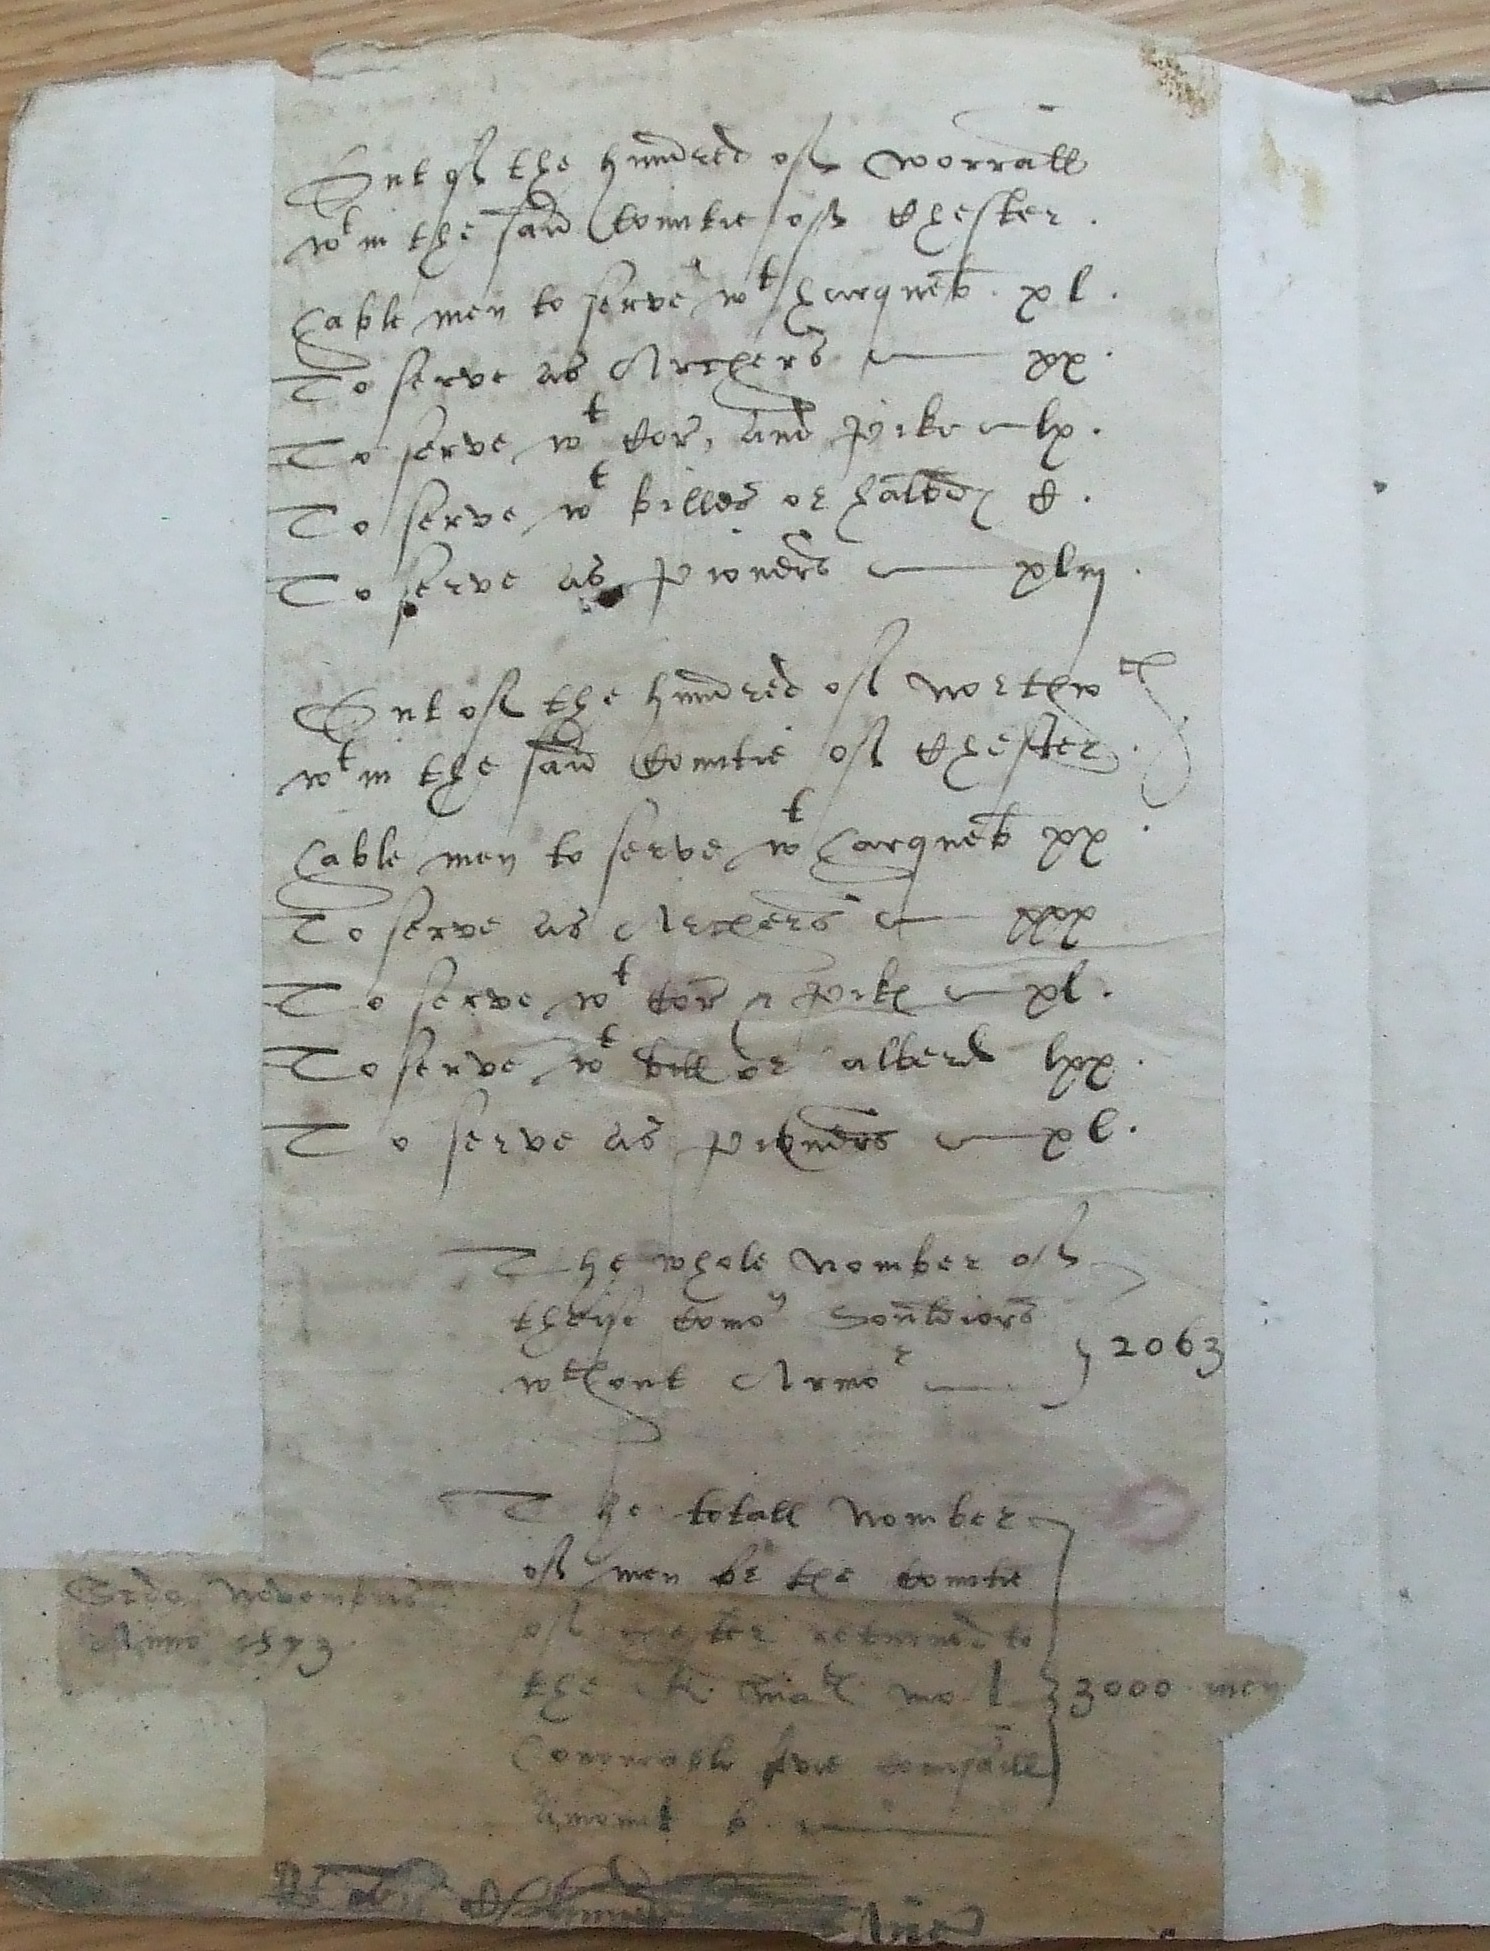 Out of the hundred of Worrall
wt in the said Countie of Chester .
hable men to serve wt harqueb . xl .
To serve as Archers — xx .
To serve wt Cors, and pike — lx .
To serve wt billes or halbd C .
To serve as pioners — xliij .
Out of the hundred of Northwch
wt in the said Countie of Chester .
hable men to serve wt harqueb xx .
To serve as Archers — xxx
To serve wt Cors & pike — xl .
To serve wt bill or alberd lxx .
To serve as pioners — xl .
The whole Nomber of
theise Comon Souldiors
wthout Armor —
2063
The totall Nomber
of men
the Countie
of returned to
the
3000 men
honorable
Amount
Novembris
Anno 1573